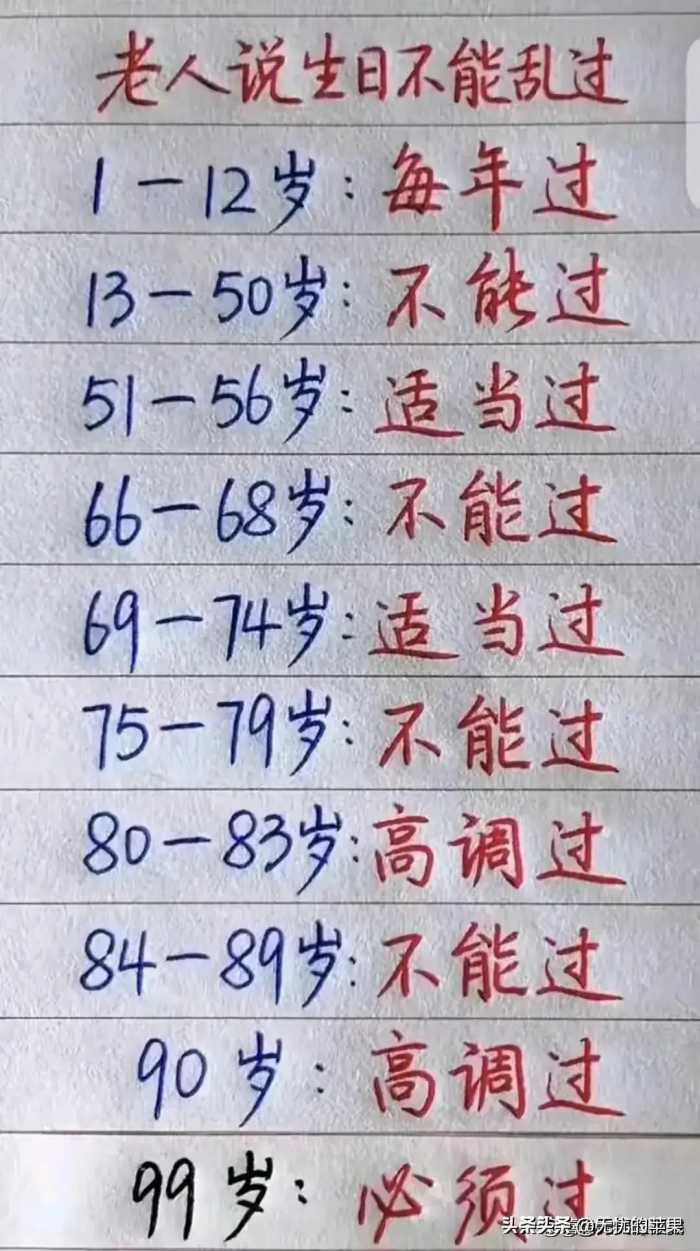 老人说生日不能乱过
1-12岁:每年过
13-50岁:不能过
51-56岁:适当过
66-68岁:不能过
69-74岁:适当过
75-79岁:不能过
80-83岁:高调过
84-89岁:不能过
90岁:高调过
99岁:必须过
头条@无忧的苹果